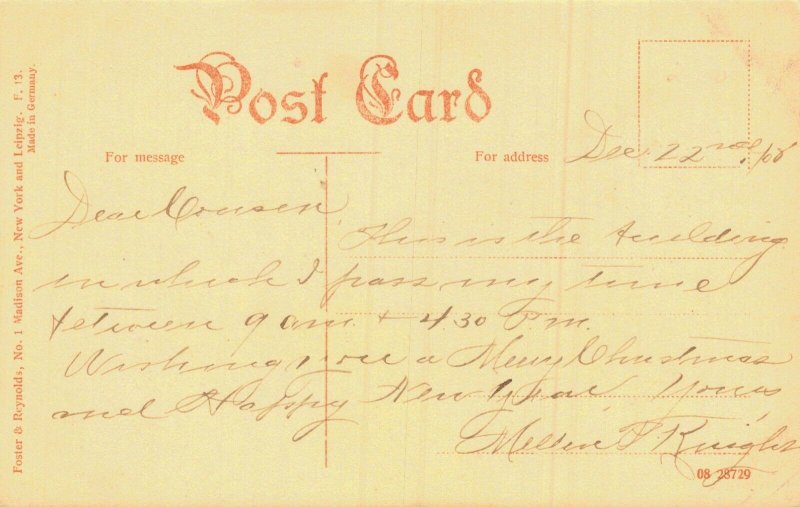 Post Card
For message
For address
Dec 22nd, /08
Dear Cousen
This is the building
in which I pass my time
between 9 am. + 430 Pm.
Wishing you a Merry Christmas
and Happy New Year, Yours,
Knight
08 28729
Foster & Reynolds, No. 1 Madison Ave., New York and Leipzig. F. 13.
Made in Germany.